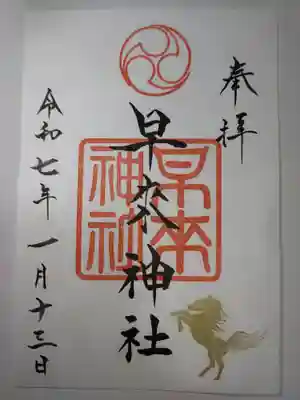 奉拝
早來神社
早来神社
令和七年一月十三日